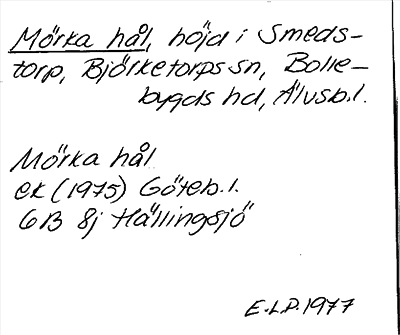 Mörka hål, höjd i Smeds-
torp, Björketorps sn, Bolle-
bygds hd, Älvsb.l.
Mörka hål
ek (1975) Göteb.l.
6B 8j Hällingsjö
E.L.P. 1977